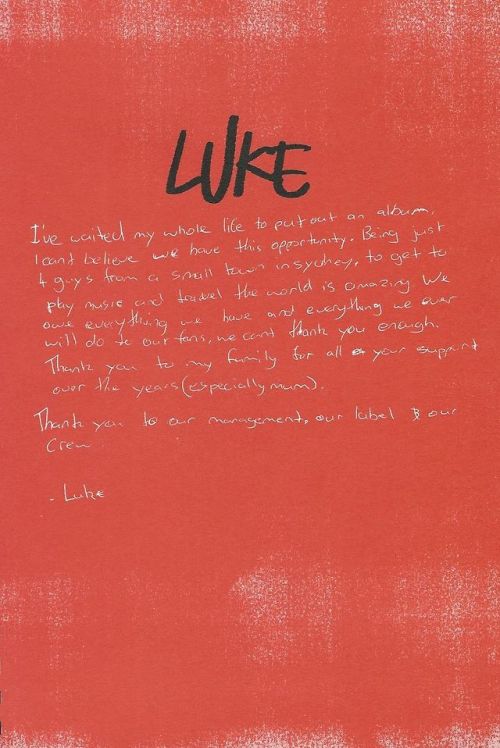 LUKE
I've waited my whole life to put out an album,
I cant believe we have this opportunity. Being just
4 guys from a small town in sydney, to get to
play music and travel the world is amazing We
owe everything we have and everything we ever
will do to our fans, we cant thank you enough.
Thank you to my family for all of your support
over the years (especially mum).
Thank you to our management, our label & our
Crew
- Luke